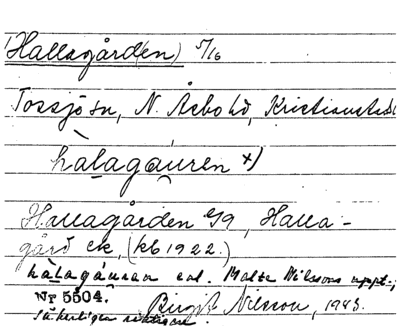 Hallagård(en) 5/16
Tossjö sn, N. Åsbo hd, Kristianstads
hàlagáuren x)
Hallagården 9, Halla-
gård ck, (kb 1922.)
hàlagáuran enl. Malte Nilssons uppt.,
Nr 5504. Birgit Nilsson, 1943.
säkerligen riktigare.